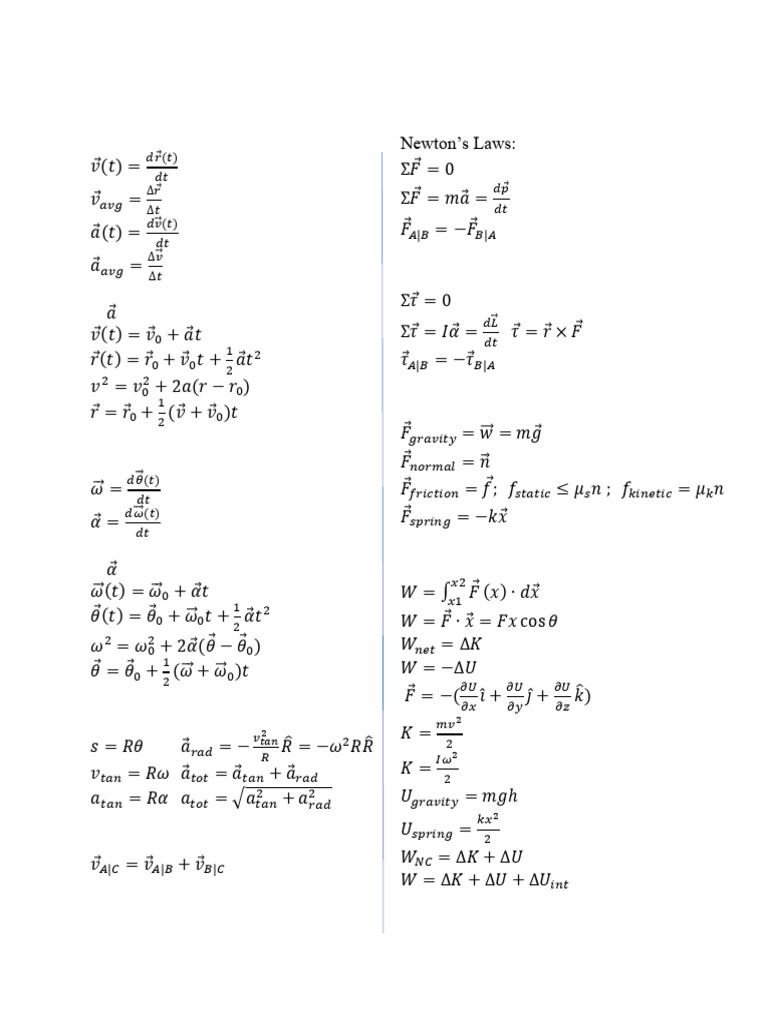 v⃗(t) = dr⃗(t)/dt
v⃗_avg = Δr⃗/Δt
a⃗(t) = dv⃗(t)/dt
a⃗_avg = Δv⃗/Δt
a⃗
v⃗(t) = v⃗₀ + a⃗t
r⃗(t) = r⃗₀ + v⃗₀t + ½a⃗t²
v² = v₀² + 2a(r − r₀)
r⃗ = r⃗₀ + ½(v⃗ + v⃗₀)t
ω⃗ = dθ⃗(t)/dt
α⃗ = dω⃗(t)/dt
α⃗
ω⃗(t) = ω⃗₀ + α⃗t
θ⃗(t) = θ⃗₀ + ω⃗₀t + ½α⃗t²
ω² = ω₀² + 2α⃗(θ⃗ − θ⃗₀)
θ⃗ = θ⃗₀ + ½(ω⃗ + ω⃗₀)t
s = Rθ a⃗_rad = −(v²_tan/R)R̂ = −ω²RR̂
v_tan = Rω a⃗_tot = a⃗_tan + a⃗_rad
a_tan = Rα a_tot = √(a²_tan + a²_rad)
v⃗_A|C = v⃗_A|B + v⃗_B|C
Newton’s Laws:
ΣF⃗ = 0
ΣF⃗ = ma⃗ = dp⃗/dt
F⃗_A|B = −F⃗_B|A
Στ⃗ = 0
Στ⃗ = Iα⃗ = dL⃗/dt τ⃗ = r⃗ × F⃗
τ⃗_A|B = −τ⃗_B|A
F⃗_gravity = w⃗ = mg⃗
F⃗_normal = n⃗
F⃗_friction = f⃗; f_static ≤ μ_s n ; f_kinetic = μ_k n
F⃗_spring = −kx⃗
W = ∫_x1^x2 F⃗(x) · dx⃗
W = F⃗ · x⃗ = Fx cos θ
W_net = ΔK
W = −ΔU
F⃗ = −(∂U/∂x î + ∂U/∂y ĵ + ∂U/∂z k̂)
K = mv²/2
K = Iω²/2
U_gravity = mgh
U_spring = kx²/2
W_NC = ΔK + ΔU
W = ΔK + ΔU + ΔU_int